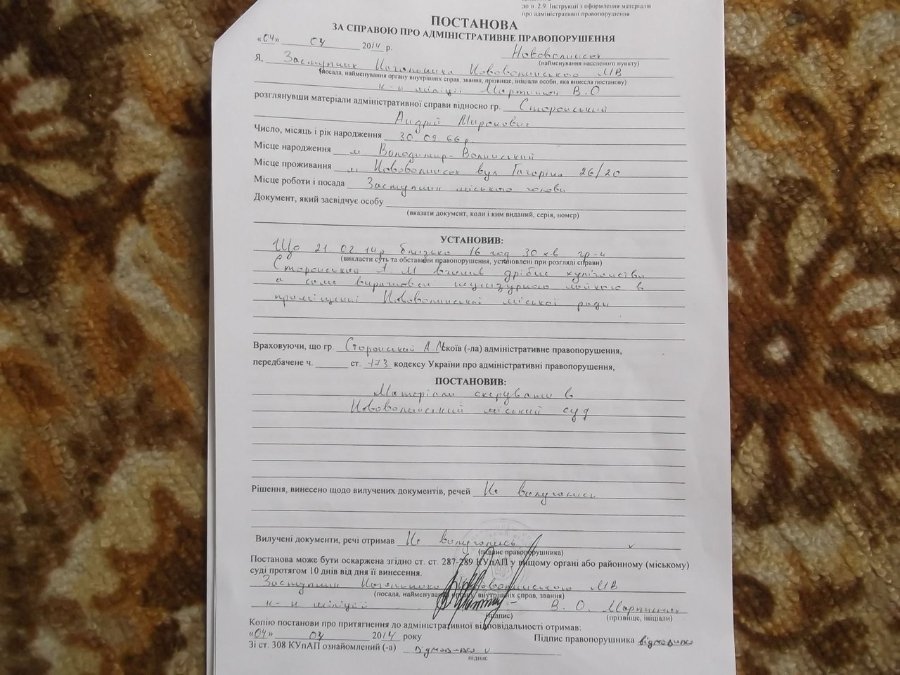 до п. 2.9. Інструкції з оформлення матеріалів
про адміністративні правопорушення
ПОСТАНОВА
ЗА СПРАВОЮ ПРО АДМІНІСТРАТИВНЕ ПРАВОПОРУШЕННЯ
«04» 03 2014 р. Нововолинськ
(найменування населеного пункту)
Я, Заступник Начальника Нововолинського МВ
(посада, найменування органу внутрішніх справ, звання, прізвище, ініціали особи, яка винесла постанову)
к-н міліції Мартинюк В.О
розглянувши матеріали адміністративної справи відносно гр. Сторонський
Андрій Миронович
Число, місяць і рік народження 30 09 66р.
Місце народження м Володимир-Волинський
Місце проживання м Нововолинськ вул Гагаріна 26/20
Місце роботи і посада Заступник міського голови
Документ, який засвідчує особу
(вказати документ, коли і ким виданий, серія, номер)
УСТАНОВИВ:
Що 21 02 14р близько 16 год 30 хв гр-н
(викласти суть та обставини правопорушення, установлені при розгляді справи)
Сторонський А М вчинив дрібне хуліганство
а саме виражався нецензурною лайкою в
приміщенні Нововолинської міської ради
Враховуючи, що гр. Сторонський А.М. скоїв (-ла) адміністративне правопорушення,
передбачене ч. ст. 173 кодексу України про адміністративні правопорушення,
ПОСТАНОВИВ:
Матеріали скерувати в
Нововолинський міський суд
Рішення, винесено щодо вилучених документів, речей Не вилучались
Вилучені документи, речі отримав Не вилучались
(підпис правопорушника)
Постанова може бути оскаржена згідно ст. ст. 287-289 КУпАП у вищому органі або районному (міському)
суді протягом 10 днів від дня її винесення.
Заступник Начальника Нововолинського МВ
(посада, найменування органу внутрішніх справ, звання)
к-н міліції В. О. Мартинюк
підпис) (прізвище, ініціали)
Копію постанови про притягнення до адміністративної відповідальності отримав:
«04» 03 2014 року Підпис правопорушника відмовився
Зі ст. 308 КУпАП ознайомлений (-а) відмовився
підпис